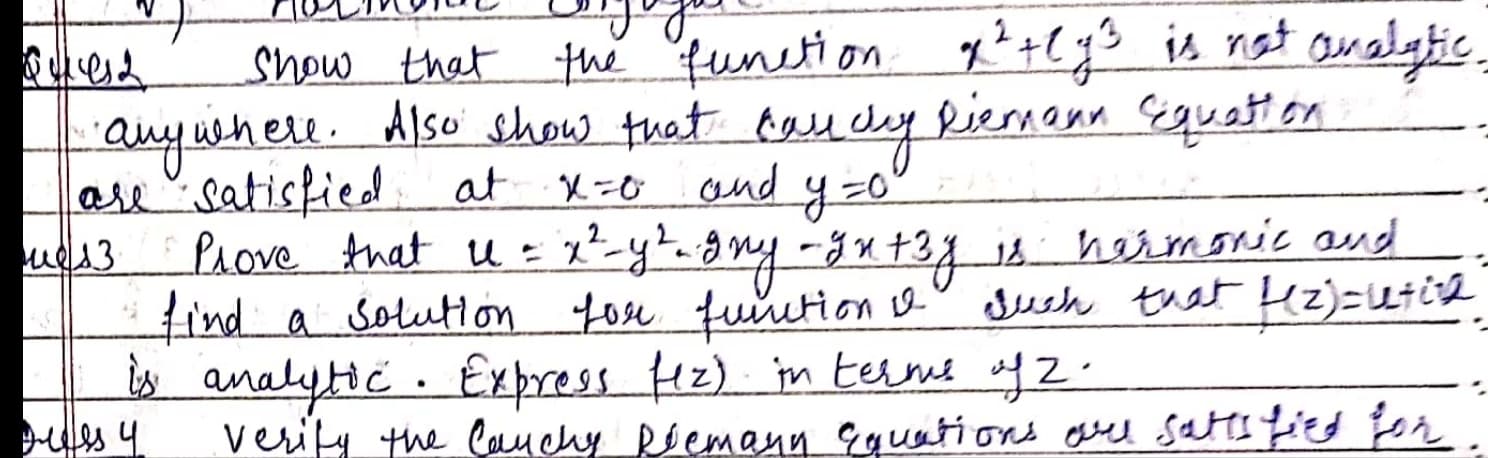 Ques2 Show that the function x²+iy³ is not analytic
anywhere. Also show that Cauchy Riemann Equation
are satisfied at x=0 and y=0
Ques3 Prove that u = x²-y²-2xy-2x+3y is harmonic and
find a solution for function v such that f(z)=u+iv
is analytic. Express f(z) in terms of z.
Ques 4 Verify the Cauchy Riemann Equations are satisfied for